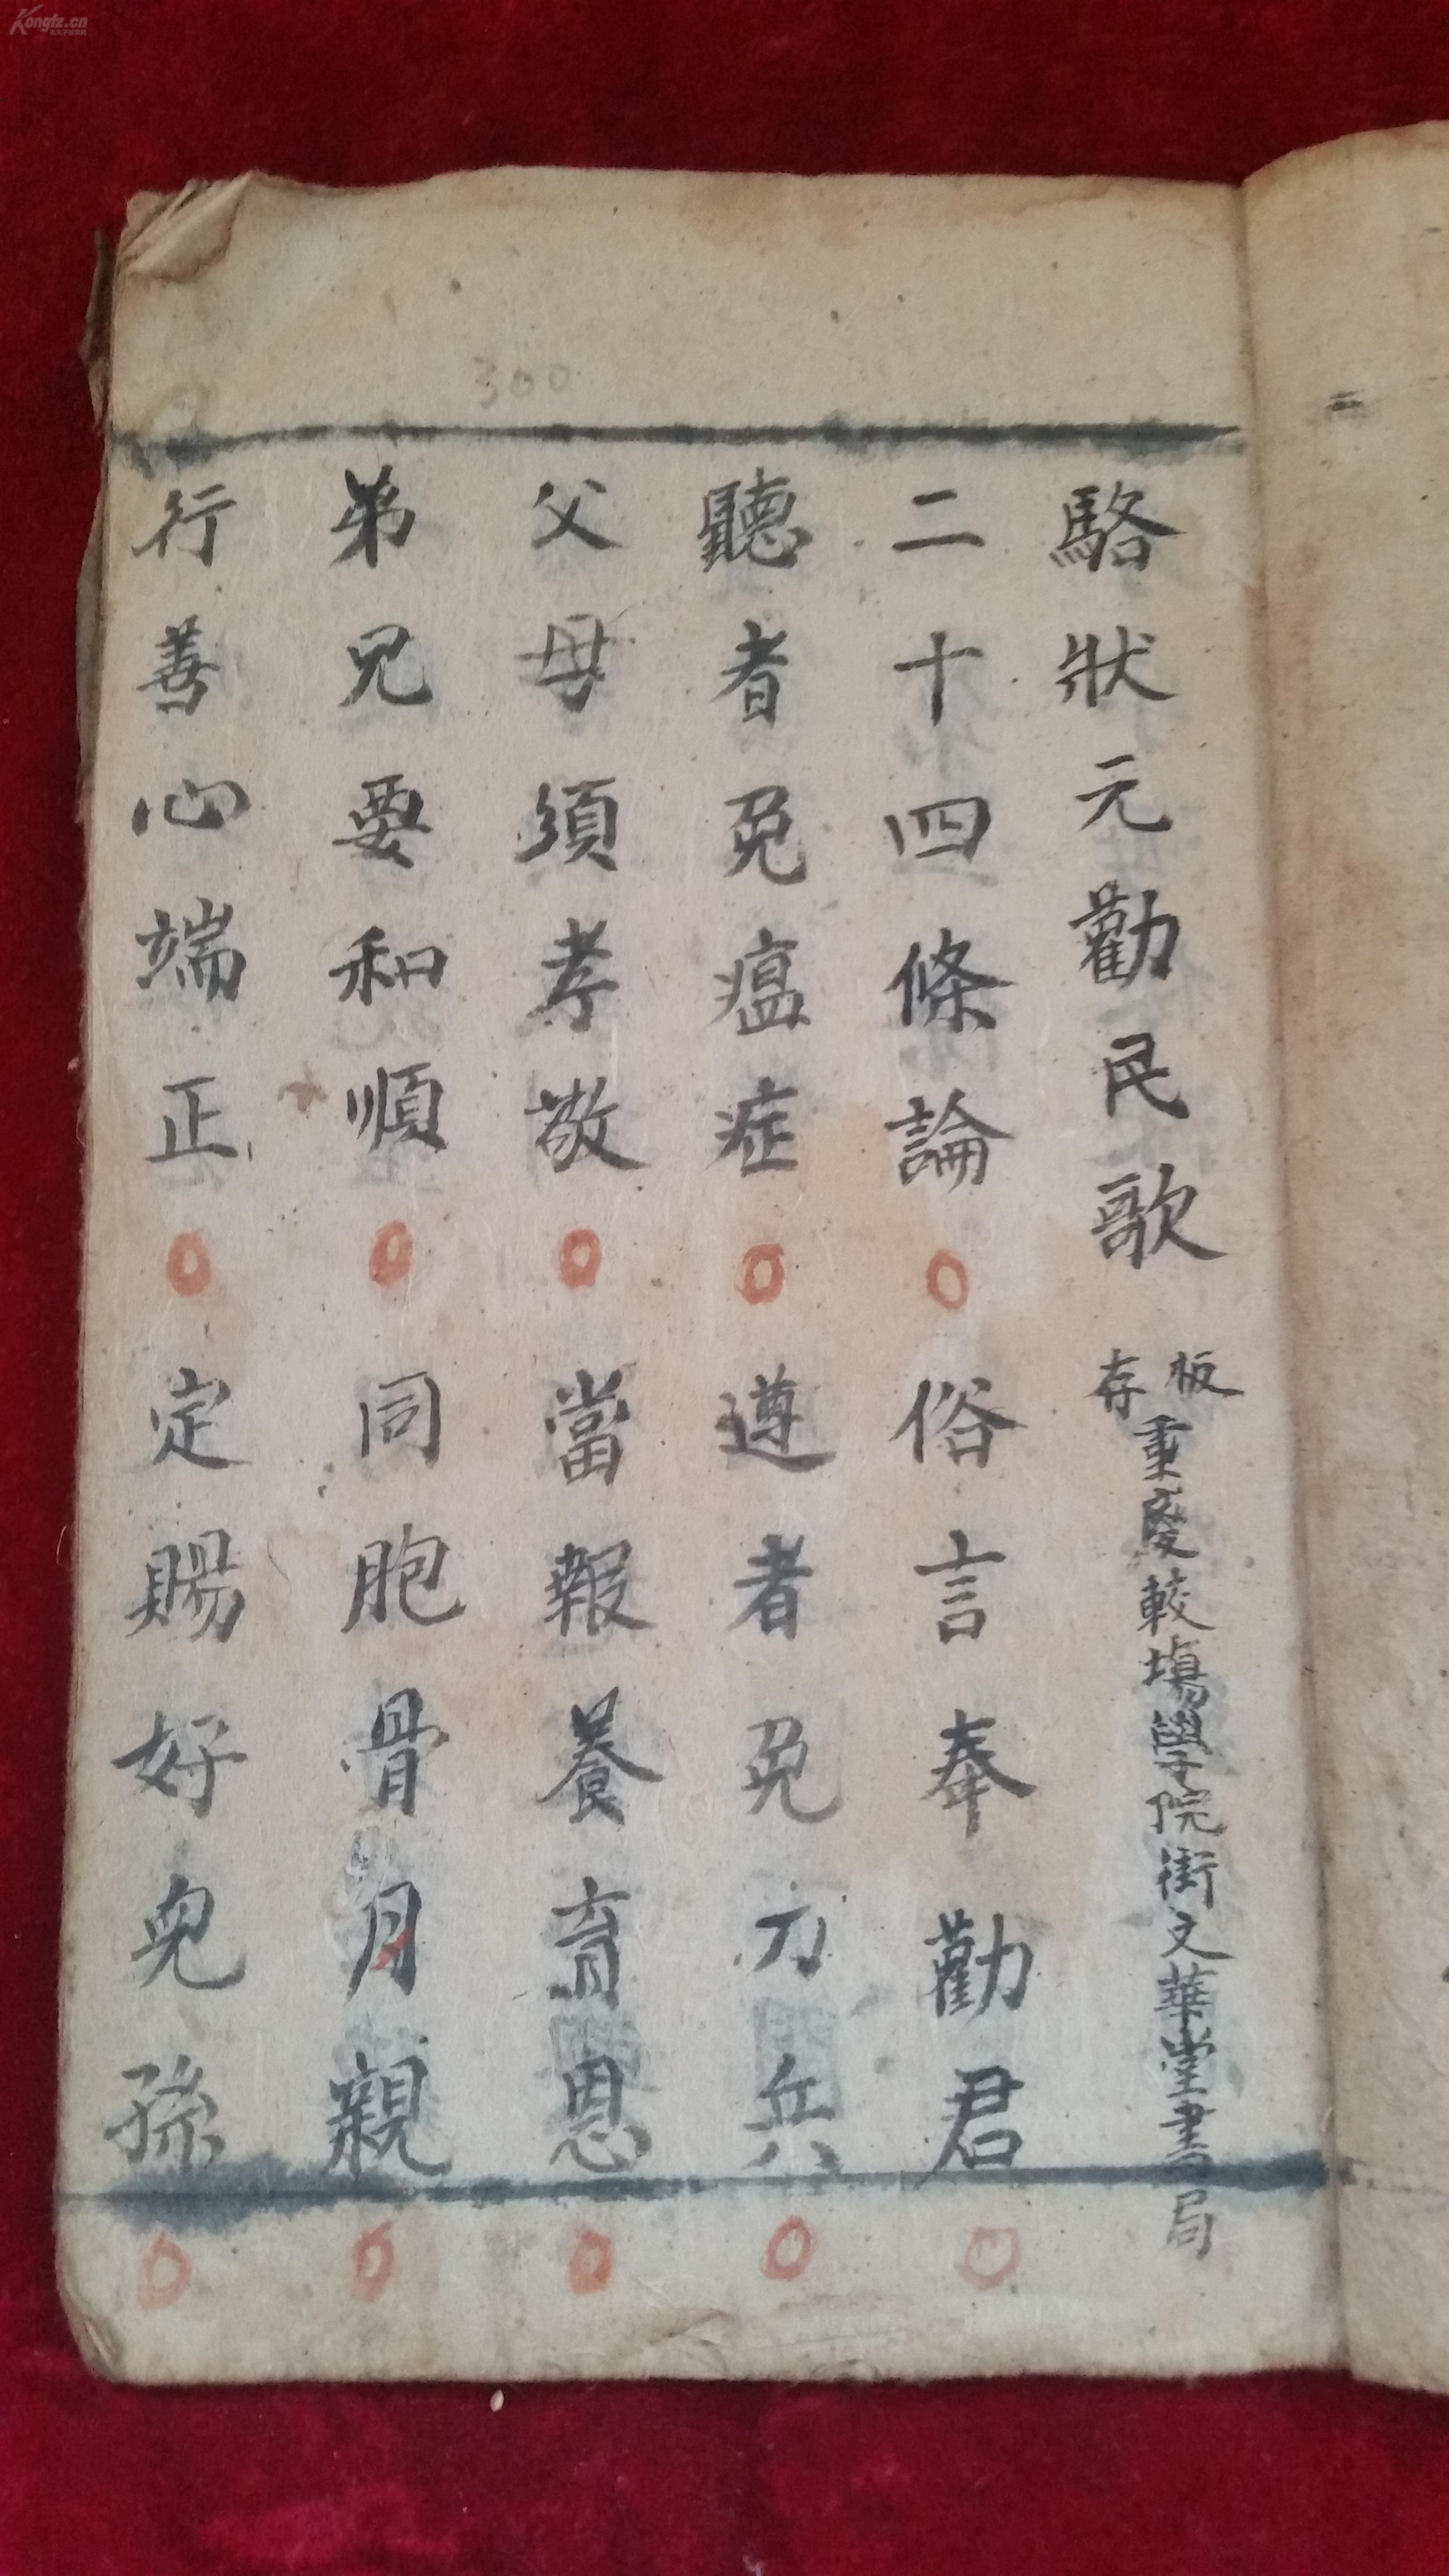 駱狀元勸民歌 板存重慶較場學院街文華堂書局
二十四條論○俗言奉勸君○
聽者免瘟症○遵者免刀兵○
父母須孝敬○當報養育恩○
弟兄要和順○同胞骨月親○
行善心端正○定賜好兒孫○
300
Kongfz.cn